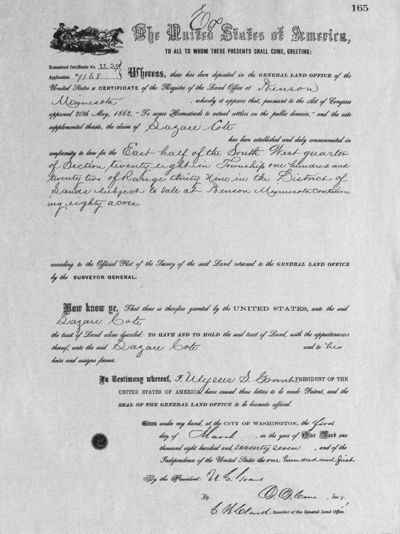 165
The United States of America,
TO ALL TO WHOM THESE PRESENTS SHALL COME, GREETING:
Homestead Certificate No.
Application 7168 Whereas, there has been deposited in the GENERAL LAND OFFICE of the
United States a CERTIFICATE of the Register of the Land Office at Benson
Minnesota, whereby it appears that, pursuant to the Act of Congress
approved 20th May, 1862, "To secure Homesteads to actual settlers on the public domain," and the acts
supplemental thereto, the claim of Lazare Cote
has been established and duly consummated in
conformity to law for the East half of the South West quarter
of Section twenty eight in Township one hundred and
twenty two of Range thirty nine in the District of
Lands subject to sale at Benson Minnesota contain
ing eighty acres
according to the Official Plat of the Survey of the said Land returned to the GENERAL LAND OFFICE
by the SURVEYOR GENERAL.
Now know ye, That there is therefore granted by the UNITED STATES, unto the said
Lazare Cote
the tract of Land above described: TO HAVE AND TO HOLD the said tract of Land, with the appurtenances
thereof, unto the said Lazare Cote and to his
heirs and assigns forever.
In Testimony whereof, I, Ulysses S. Grant PRESIDENT OF THE
UNITED STATES OF AMERICA, have caused these letters to be made Patent, and the
SEAL OF THE GENERAL LAND OFFICE to be hereunto affixed.
Given under my hand, at the CITY OF WASHINGTON, the first
day of March, in the year of Our Lord one
thousand eight hundred and seventy seven, and of the
Independence of the United States the one hundred and first
By the President: U.S. Grant
By D. D. Cone, Sec'y.
Recorder of the General Land Office.